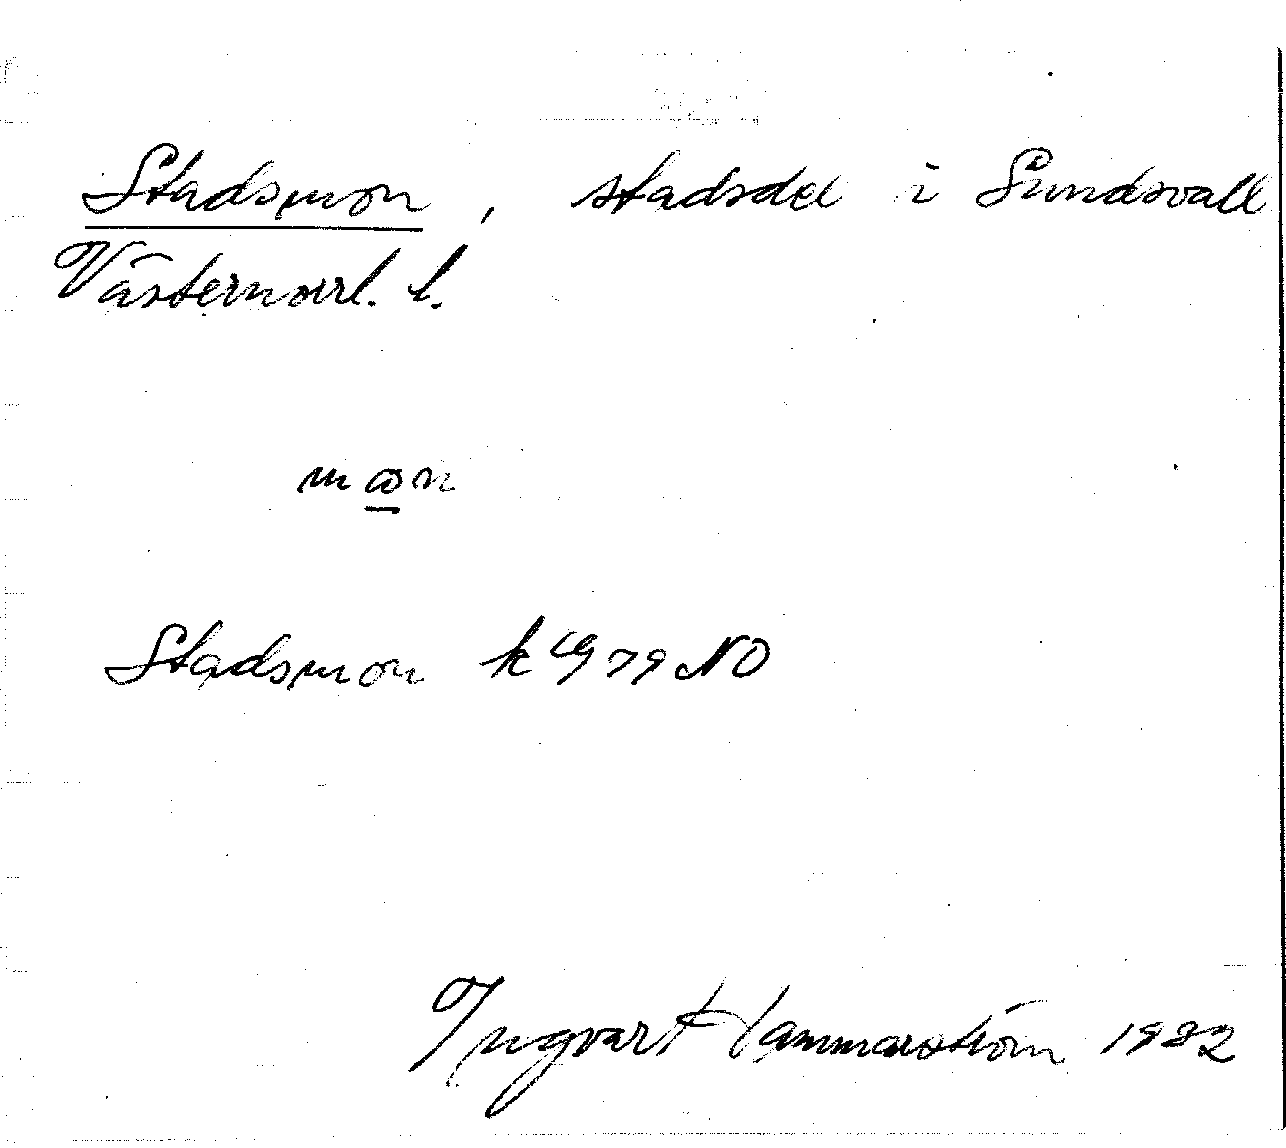 Stadsmon, stadsdel i Sundsvall
Västernorrl. l.
mon
Stadsmon k 79 NO
Ingvar Hammarström 1982